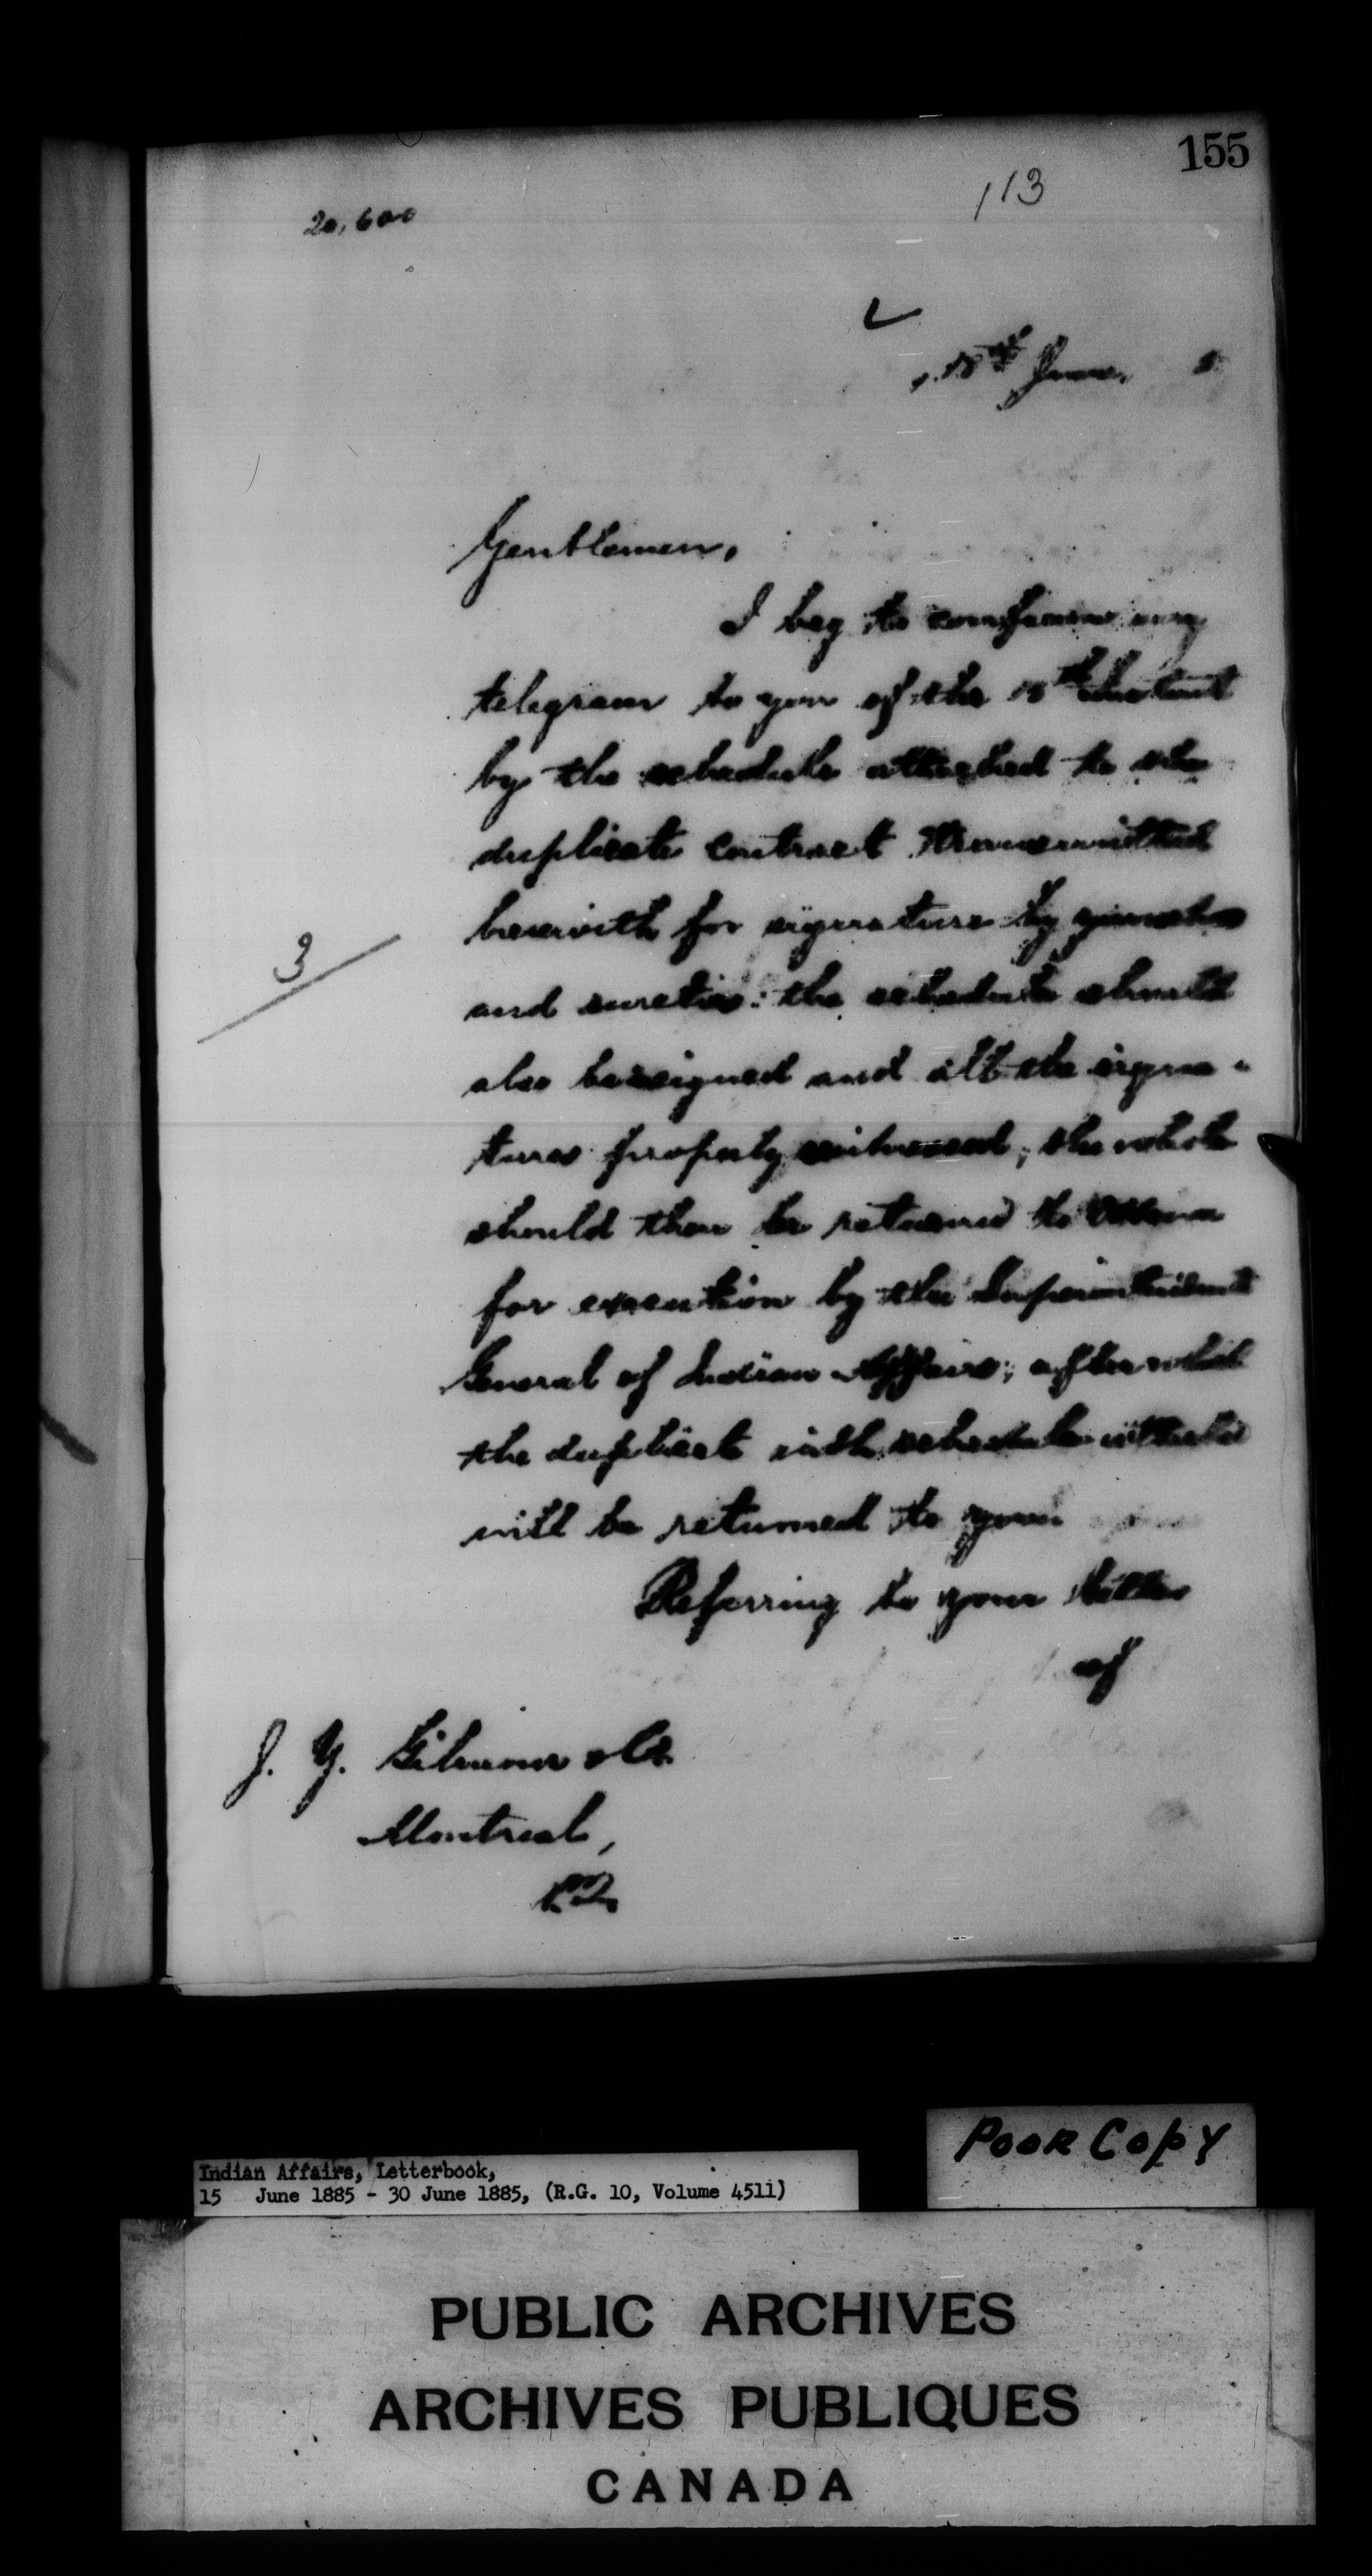 155
113
20,600
18th June, 5
Gentlemen,
I beg to confirm my
telegram to you of the instant
by the schedule attached to the
duplicate contract transmitted
herewith for signature by yourselves
and sureties: the schedule should
also be signed and all the signa-
tures properly witnessed; the whole
should then be returned to Ottawa
for execution by the Superintendent
General of Indian Affairs; after which
the duplicate with schedule attached
will be returned to you
Referring to your letter
of
3
J. Y. Gilmour & Co.
Montreal,
P.Q.
Poor Copy
Indian Affairs, Letterbook,
15 June 1885 - 30 June 1885, (R.G. 10, Volume 4511)
PUBLIC ARCHIVES
ARCHIVES PUBLIQUES
CANADA